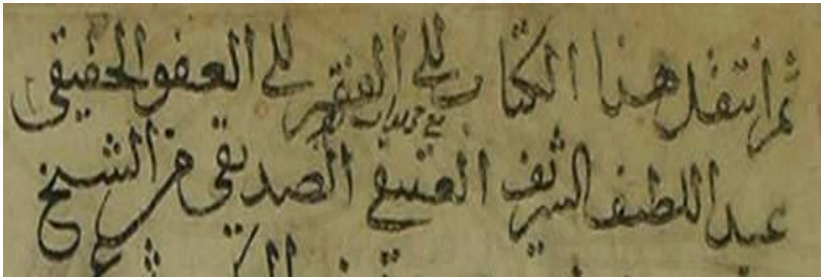 ثم انتقل هذا الكتاب الى الفقير الى العفو الحقيقى
عبد اللطيف الشريف العتيقي الصديقي من الشيخ